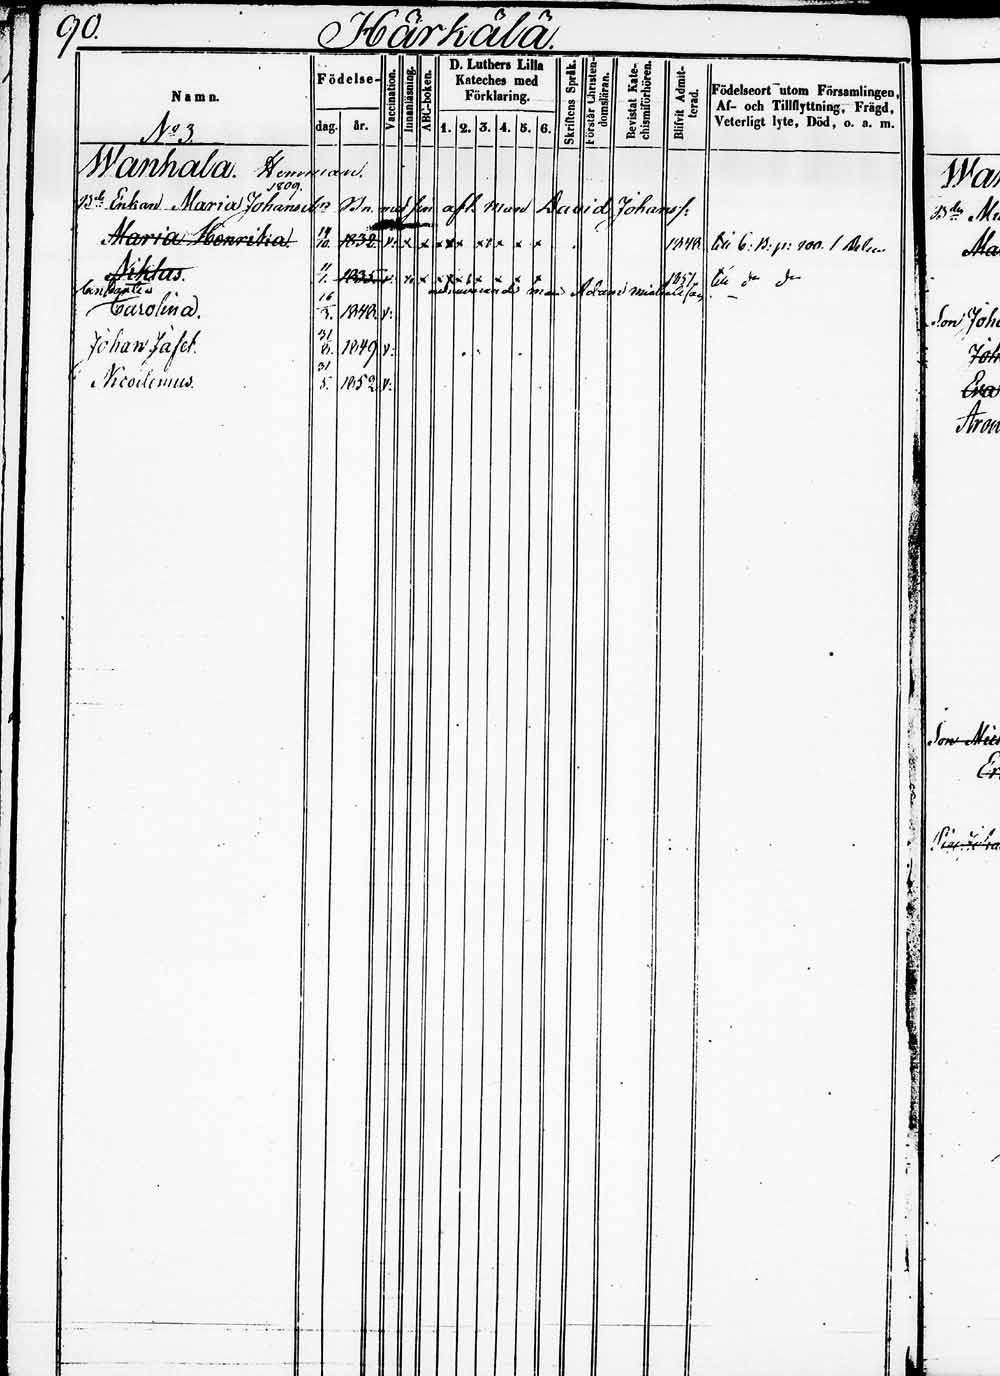 90. Härkälä.
Namn.
Födelse-
dag. år.
Vaccination.
Innanläsning.
ABC-boken.
D. Luthers Lilla
Kateches med
Förklaring.
1. 2. 3. 4. 5. 6.
Skriftens Språk.
Förstår Christen-
domsläran.
Bevistat Kate-
chismiförhören.
Blifvit Admit-
terad.
Födelseort utom Församlingen,
Af- och Tillflyttning, Frägd,
Veterligt lyte, Död, o. a. m.
No 3.
Wanhala. Hemman. Wan
1809.
Bde Enkan Maria Johansdr med sin afl. man David Johanss:
Maria Henrika. 19/10. 1832 v: x x x x x x x x x 1848
Niklas. 11/1. 1835 v: x x x x x x x x 1851 do do
Carolina. 16/3. 1848 v:
Johan Jafet. 31/8. 1849 v:
Nicodemus. 31/5. 1852 v:
Son Joha
Joh
Eva
Aron
Son Mich
Er